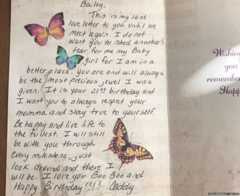 Bailey,
This is my last
love letter to you until we
meet again. I do not
want you to shed another
tear for me my Baby
girl for I am in a
better place. You are and will always
be the most precious jewel I was
given. It is your 21st birthday and
I want you to always respect your
momma and stay true to yourself.
Be happy and live life to
the fullest. I will still
be with you through
every milestone, just
look around and there I
will be. I love you Boo Boo and
Happy Birthday!!! Daddy
Wishin
you
remembe
Happ